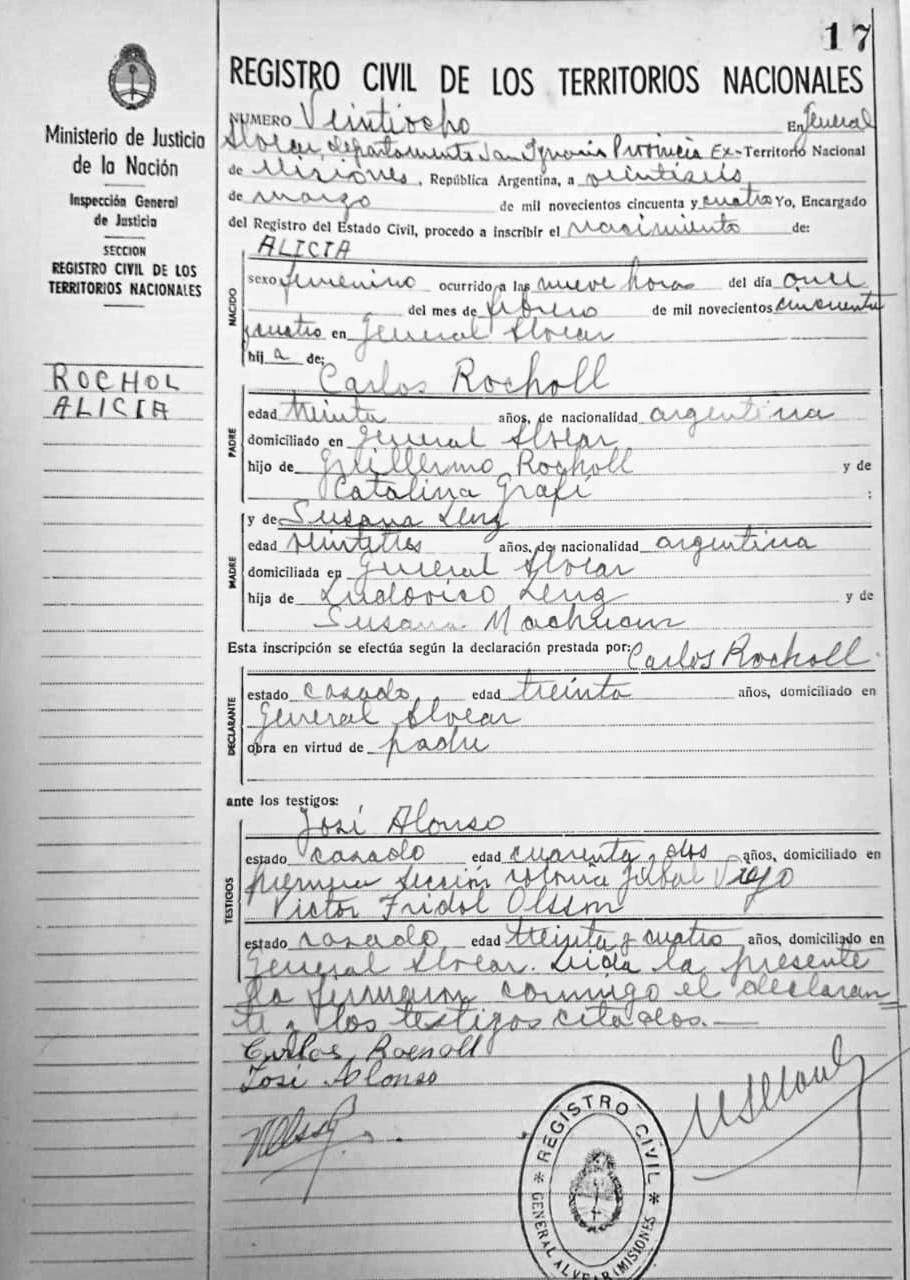 17
REGISTRO CIVIL DE LOS TERRITORIOS NACIONALES
Ministerio de Justicia
de la Nación
Inspección General
de Justicia
SECCION
REGISTRO CIVIL DE LOS
TERRITORIOS NACIONALES
ROCHOL
ALICIA
NUMERO Veintiocho En General
Alvear, departamento San Ignacio Provincia Ex-Territorio Nacional
de Misiones, República Argentina, a veintiseis
de marzo de mil novecientos cincuenta y cuatro Yo, Encargado
del Registro del Estado Civil, procedo a inscribir el nacimiento de:
NACIDO
ALICIA
sexo femenino ocurrido a las nueve horas del día once
del mes de febrero de mil novecientos cincuenta
cuatro en General Alvear
hija de:
PADRE
Carlos Rocholl
edad treinta años, de nacionalidad argentina
domiciliado en General Alvear
hijo de Guillermo Rocholl y de
Catalina Grafi ;
MADRE
y de Susana Leng
edad veintitres años, de nacionalidad argentina
domiciliada en General Alvear
hija de Ludovico Leng y de
Susana
Esta inscripción se efectúa según la declaración prestada por: Carlos Rocholl.
DECLARANTE
estado casado edad treinta años, domiciliado en
General Alvear
obra en virtud de padre
ante los testigos:
TESTIGOS
José Alonso
estado casado edad cuarenta y dos años, domiciliado en
sección colonia Yabal Viejo
Victor Fridol Olsson
estado casado edad treinta y cuatro años, domiciliado en
General Alvear. Leida la presente
la firmaron conmigo el declaran
te y los testigos citados.—
Carlos Rocholl
José Alonso
REGISTRO CIVIL
GENERAL ALVEAR (MISIONES)